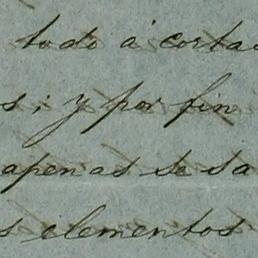 todo á corta
s; y por fin
apenas se sa
s elementos